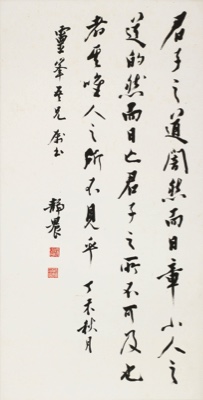 君子之道闇然而日章小人之
道的然而日亡君子之所不可及也
者其唯人之所不見乎 丁未秋月
靈峯吾兄属书 靜農